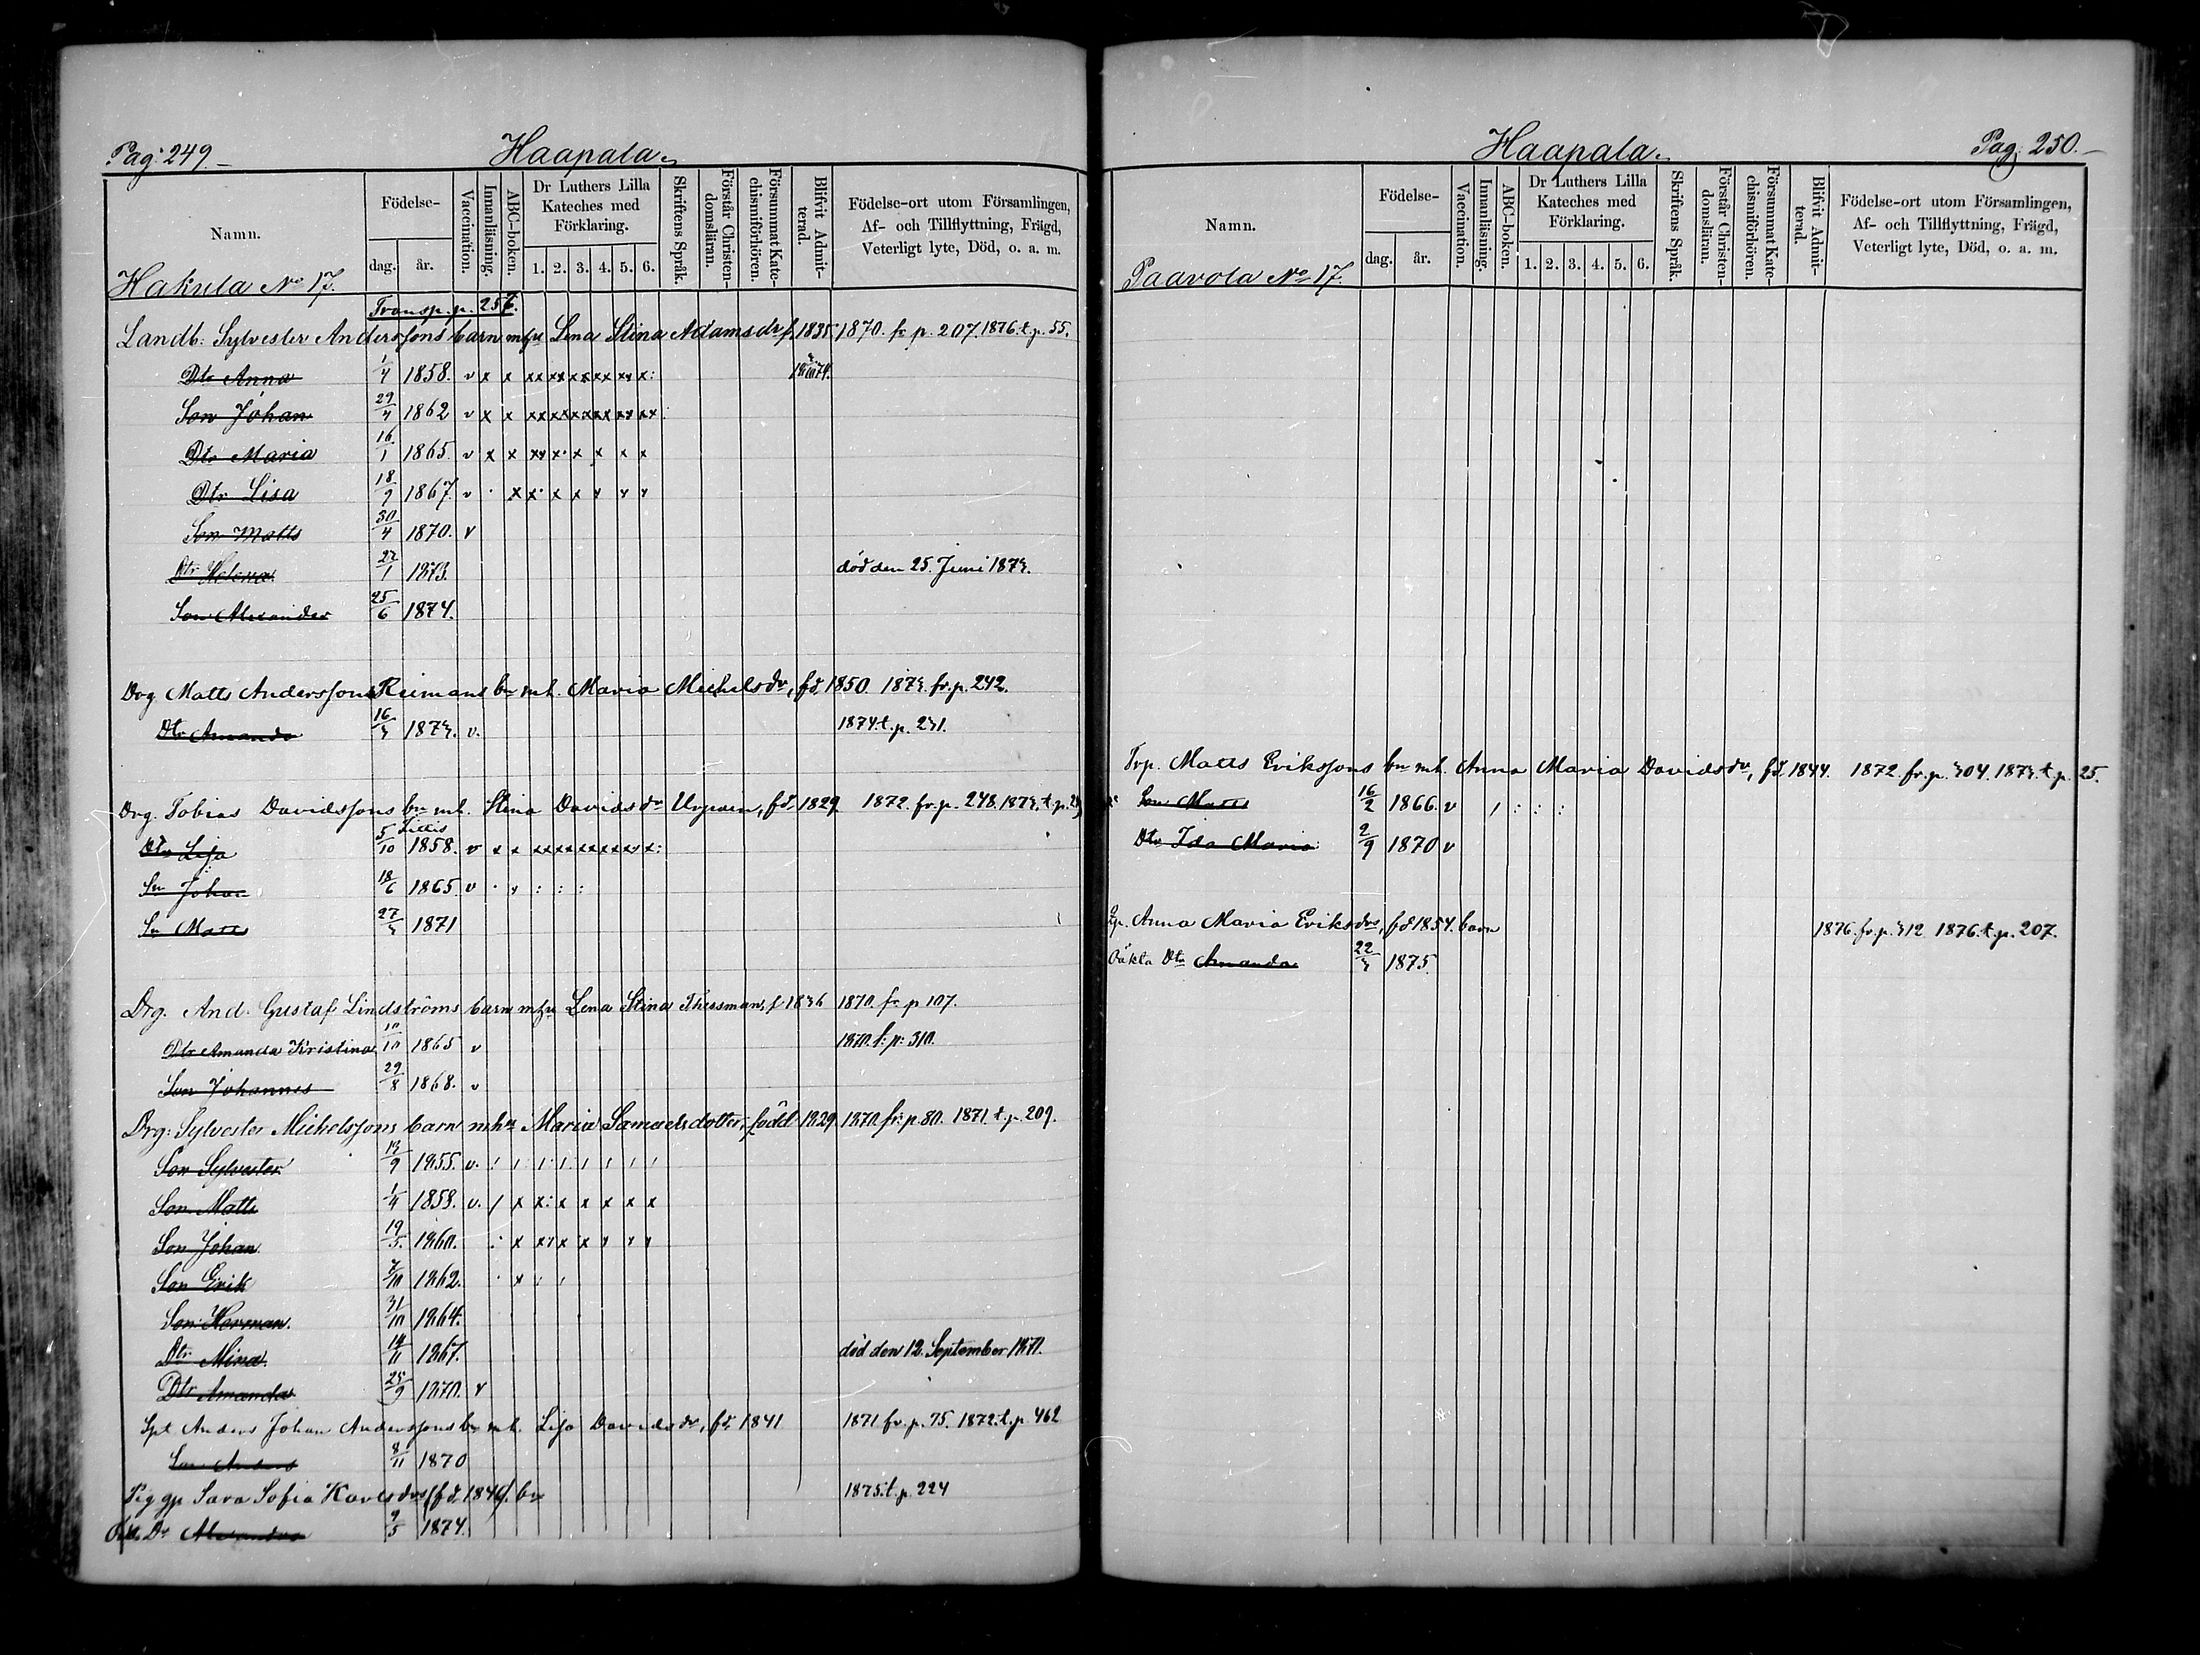 Pag: 249.
Haapala.
Namn.
Födelse-
dag.
år.
Vaccination.
Innanläsning.
ABC-boken.
Dr Luthers Lilla
Kateches med
Förklaring.
1. 2. 3. 4. 5. 6.
Skriftens Språk.
Förstår Christen-
domsläran.
Försummat Kate-
chismiförhören.
Blifvit Admit-
terad.
Födelse-ort utom Församlingen,
Af- och Tillflyttning, Frägd,
Veterligt lyte, Död, o. a. m.
Hakula No 17.
Transp. p. 257.
Landb: Sylvester Anderssons barn m hu Lena Stina Adamsdr f. 1835. 1870. fr p. 207. 1876. t. p. 55.
Dtr Anna 1/4 1858. v x x xx xx xx xx xx x: 1874.
Son Johan 29/4 1862 v x x xx xx xx xx xx xx
Dtr Maria 16/1 1865. v x x xx x x x x x
Dtr Lisa 18/9 1867. v x x x x x x x
Son Matts 30/4 1870. v
Dtr Helena 27/1 1873. död den 25. Juni 1873.
Son Alexander 25/6 1874.
Drg. Matts Anderssons Reimans bn mh. Maria Michelsdr, fd. 1850. 1873. fr. p. 242.
Dtr Amanda 16/3 1873. v. 1874. t. p. 231.
Drg. Tobias Davidssons bn mh. Stina Davidsdr Urpoen, fd. 1829 1872. fr. p. 248. 1873. t. p.
Dtr Lisa 5/10 1858. v x x xx xx xx xx xx x:
Sn Johan 18/6 1865. v · x : : :
Sn Matts 27/3 1871
Drg. And. Gustaf Lindströms barn m hu Lena Stina Thessman, f 1836 1870. fr p 107.
Dtr Amanda Kristina 10/10 1865 v 1870. t: p: 310.
Son Johannes 29/8 1868. v
Drg: Sylvester Michelssons barn m hu Maria Samuelsdotter, född 1829. 1870. fr: p. 80. 1871. t. p. 209.
Son Sylvester 13/9 1855. v.
Son Matts 1/4 1858. v. / x x: x x x x x
Son Johan 19/5. 1860. : x xx x x x x x
Son Erik 7/10 1862. · x
Son Herman. 31/10 1864.
Dtr Mina. 14/11 1867. död den 12. September 1871.
Dtr Amanda 25/9 1870. v
Spt Anders Johan Anderssons bn mh. Lisa Davidsdr, fd. 1841 1871 fr. p. 75. 1872. t. p. 462
Son Anders 8/11 1870
Pig gp Sara Sofia Karlsdrs, fd. 1846. bn 1875. t. p. 224
Oäkta Dr Alexandra 9/5 1874.
Haapala.
Pag. 250.
Namn.
Födelse-
dag.
år.
Vaccination.
Innanläsning.
ABC-boken.
Dr Luthers Lilla
Kateches med
Förklaring.
1. 2. 3. 4. 5. 6.
Skriftens Språk.
Förstår Christen-
domsläran.
Försummat Kate-
chismiförhören.
Blifvit Admit-
terad.
Födelse-ort utom Församlingen,
Af- och Tillflyttning, Frägd,
Veterligt lyte, Död, o. a. m.
Paavola No 17.
Trp. Matts Erikssons bn mh. Anna Maria Davidsdr, fd. 1844. 1872. fr. p. 304. 1873. t. p. 25.
Son Matts 16/2 1866. v / : : :
Dtr Ida Maria 2/9 1870 v
Anna Maria Eriksdrs, fd 1854. barn 1876. fr. p. 312 1876. t. p. 207.
Oäkta Dtr Amanda 22/3 1875.